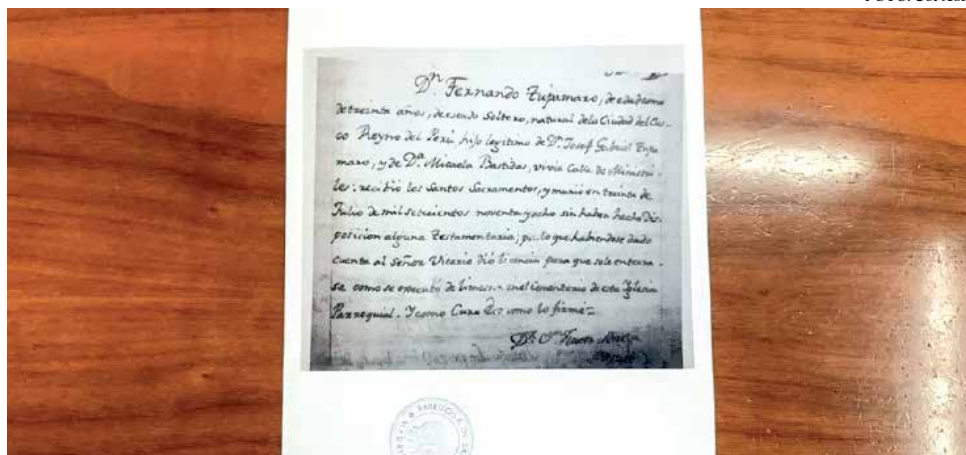 Dn. Fernando Tupamaro, de edad como
de treinta años, de estado Soltero, natural de la Ciudad del Cus-
co Reyno del Perú, hijo legitimo de Dn. Josef Gabriel Tupa
maro, y de Da. Micaela Bastidas, vivia Calle de Ministri-
les: recibio los Santos Sacramentos, y murió en treinta de
Julio de mil setecientos noventa y ocho sin haber hecho dis-
posicion alguna Testamentaria; por lo que habiendose dado
cuenta al Señor Vicario dió licencia para que se le enterra-
se como se executó de limosna en el Cementerio de esta Yglesia
Parroquial. Y como Cura lo firmé=